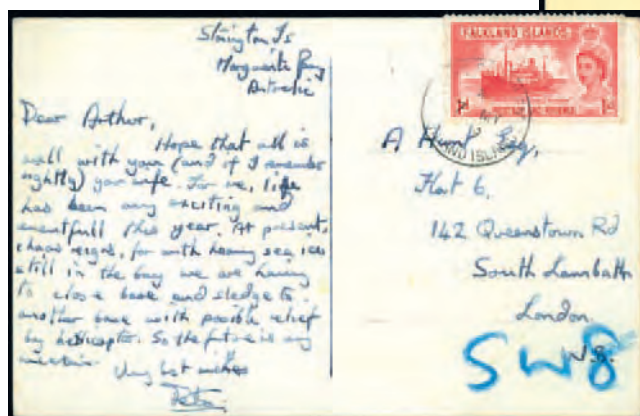 Stonington Is
Marguerite Bay
Antarctic
Dear Arthur,
Hope that all is
well with you (and if I remember
rightly) your wife. For me, life
has been very exciting and
eventfull this year. At present,
chaos reigns, for with heavy sea ice
still in the bay we are having
to close base and sledge to
another base with possible relief
by helicopter. So the future is very
uncertain.
Very best wishes
Peter
FALKLAND ISLANDS
POSTAGE AND REVENUE
A Hunt Esq,
Flat 6.
142 Queenstown Rd
South Lambeth
London
N.8.
SW8